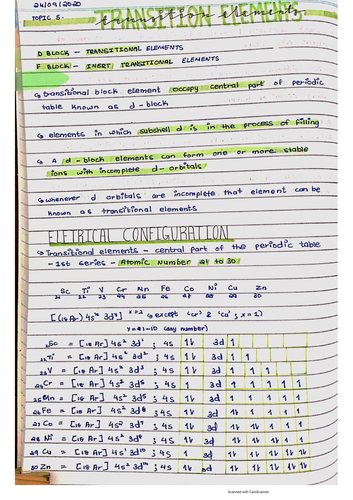 24/09/2020
TOPIC 5- TRANSITION ELEMENTS
transition elements
D BLOCK - TRANSITIONAL ELEMENTS
F BLOCK - INERT TRANSITIONAL ELEMENTS
↳ transitional block element occupy central part of periodic
table known as d-block
↳ elements in which subshell d is in the process of filling
↳ A d-block elements can form one or more stable
ions with incomplete d-orbitals
↳ whenever d orbitals are incomplete that element can be
known as transitional elements
ELETRICAL CONFIGURATION
↳ Transitional elements - central part of the periodic table
- 1st series - Atomic Number 21 to 30
Sc Ti V Cr Mn Fe Co Ni Cu Zn
21 22 23 24 25 26 27 28 29 30
[(18 Ar) 4sˣ 3dʸ] x=2 ↳ except 'Cr' & 'Cu', x=1)
Y=1-10 (any number)
21Sc = [18 Ar] 4s² 3d¹ ; 4s 1L 3d 1
22Ti = [18 Ar] 4s² 3d² ; 4s 1L 3d 1 1
23V = [18 Ar] 4s² 3d³ ; 4s 1L 3d 1 1 1
24Cr = [18 Ar] 4s² 3d⁵ ; 4s 1 3d 1 1 1 1 1
25Mn = [18 Ar] 4s² 3d⁵ ; 4s 1L 3d 1 1 1 1 1
26Fe = [18 Ar] 4s² 3d⁶ ; 4s 1L 3d 1L 1 1 1 1
27Co = [18 Ar] 4s² 3d⁷ ; 4s 1L 3d 1L 1L 1 1 1
28 Ni = [18 Ar] 4s² 3d⁸ ; 4s 1L 3d 1L 1L 1L 1 1
29 Cu = [18 Ar] 4s¹ 3d¹⁰ ; 4s 1 3d 1L 1L 1L 1L 1L
30 Zn = [18 Ar] 4s² 3d¹⁰ ; 4s 1L 3d 1L 1L 1L 1L 1L
Scanned with CamScanner